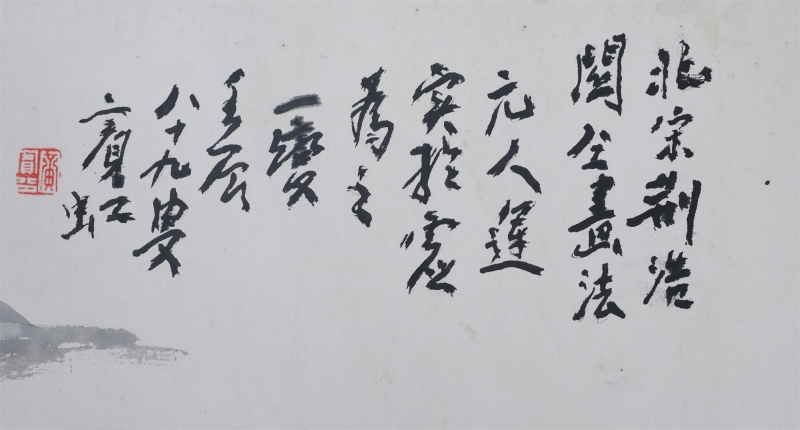 北宋荆浩
關仝畫法
元人運
實於虛
為之
一變
壬辰
八十九叟
賓虹